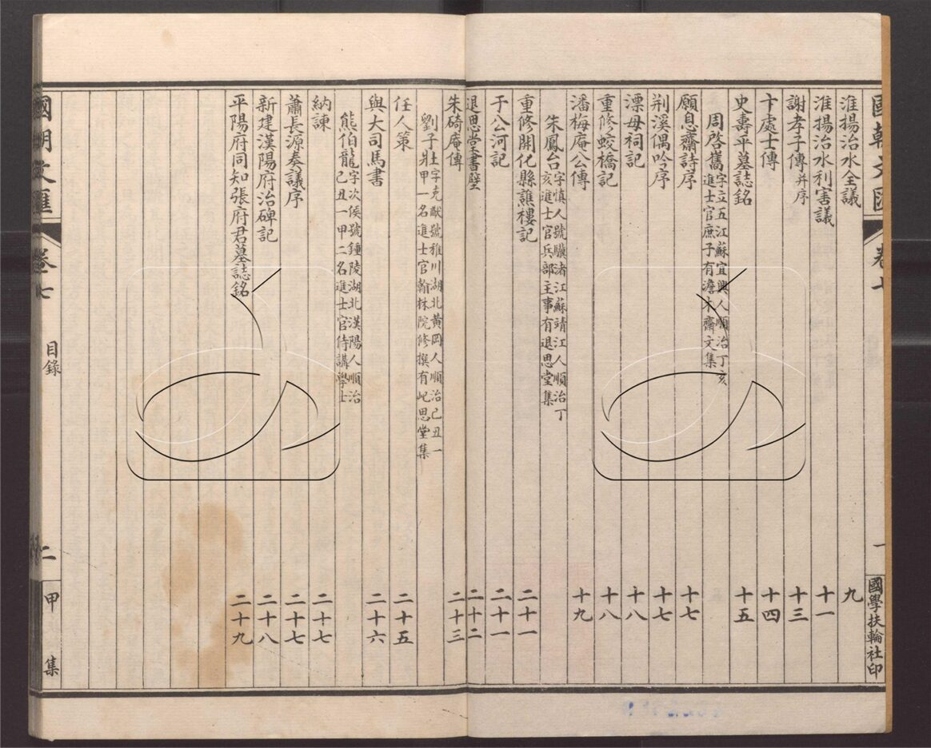 國朝文匯 卷七 一 國學扶輪社印
淮揚治水全議 九
淮揚治水利害議 十一
謝孝子傳并序 十三
卞處士傳 十四
史壽平墓誌銘 十五
周啓嶲字立五江蘇宜興人順治丁亥
進士官庶子有澹木齋文集
願息齋詩序 十七
荆溪偶吟序 十七
漂母祠記 十八
重修蛟橋記 十八
潘梅庵公傳 十九
朱鳳台字慎人號臞渚江蘇靖江人順治丁
亥進士官兵部主事有退思堂集
重修開化縣譙樓記 二十一
于公河記 二十一
退思堂書壁 二十二
朱碕庵傳 二十三
劉子壯字克猷號稚川湖北黃岡人順治己丑一
甲一名進士官翰林院修撰有屺思堂集
任人策 二十五
與大司馬書 二十六
熊伯龍字次侯號鍾陵湖北漢陽人順治
己丑一甲二名進士官侍講學士
納諫 二十七
蕭長源奏議序 二十七
新建漢陽府治碑記 二十八
平陽府同知張府君墓誌銘 二十九
國朝文匯 卷七 目錄 二 甲集